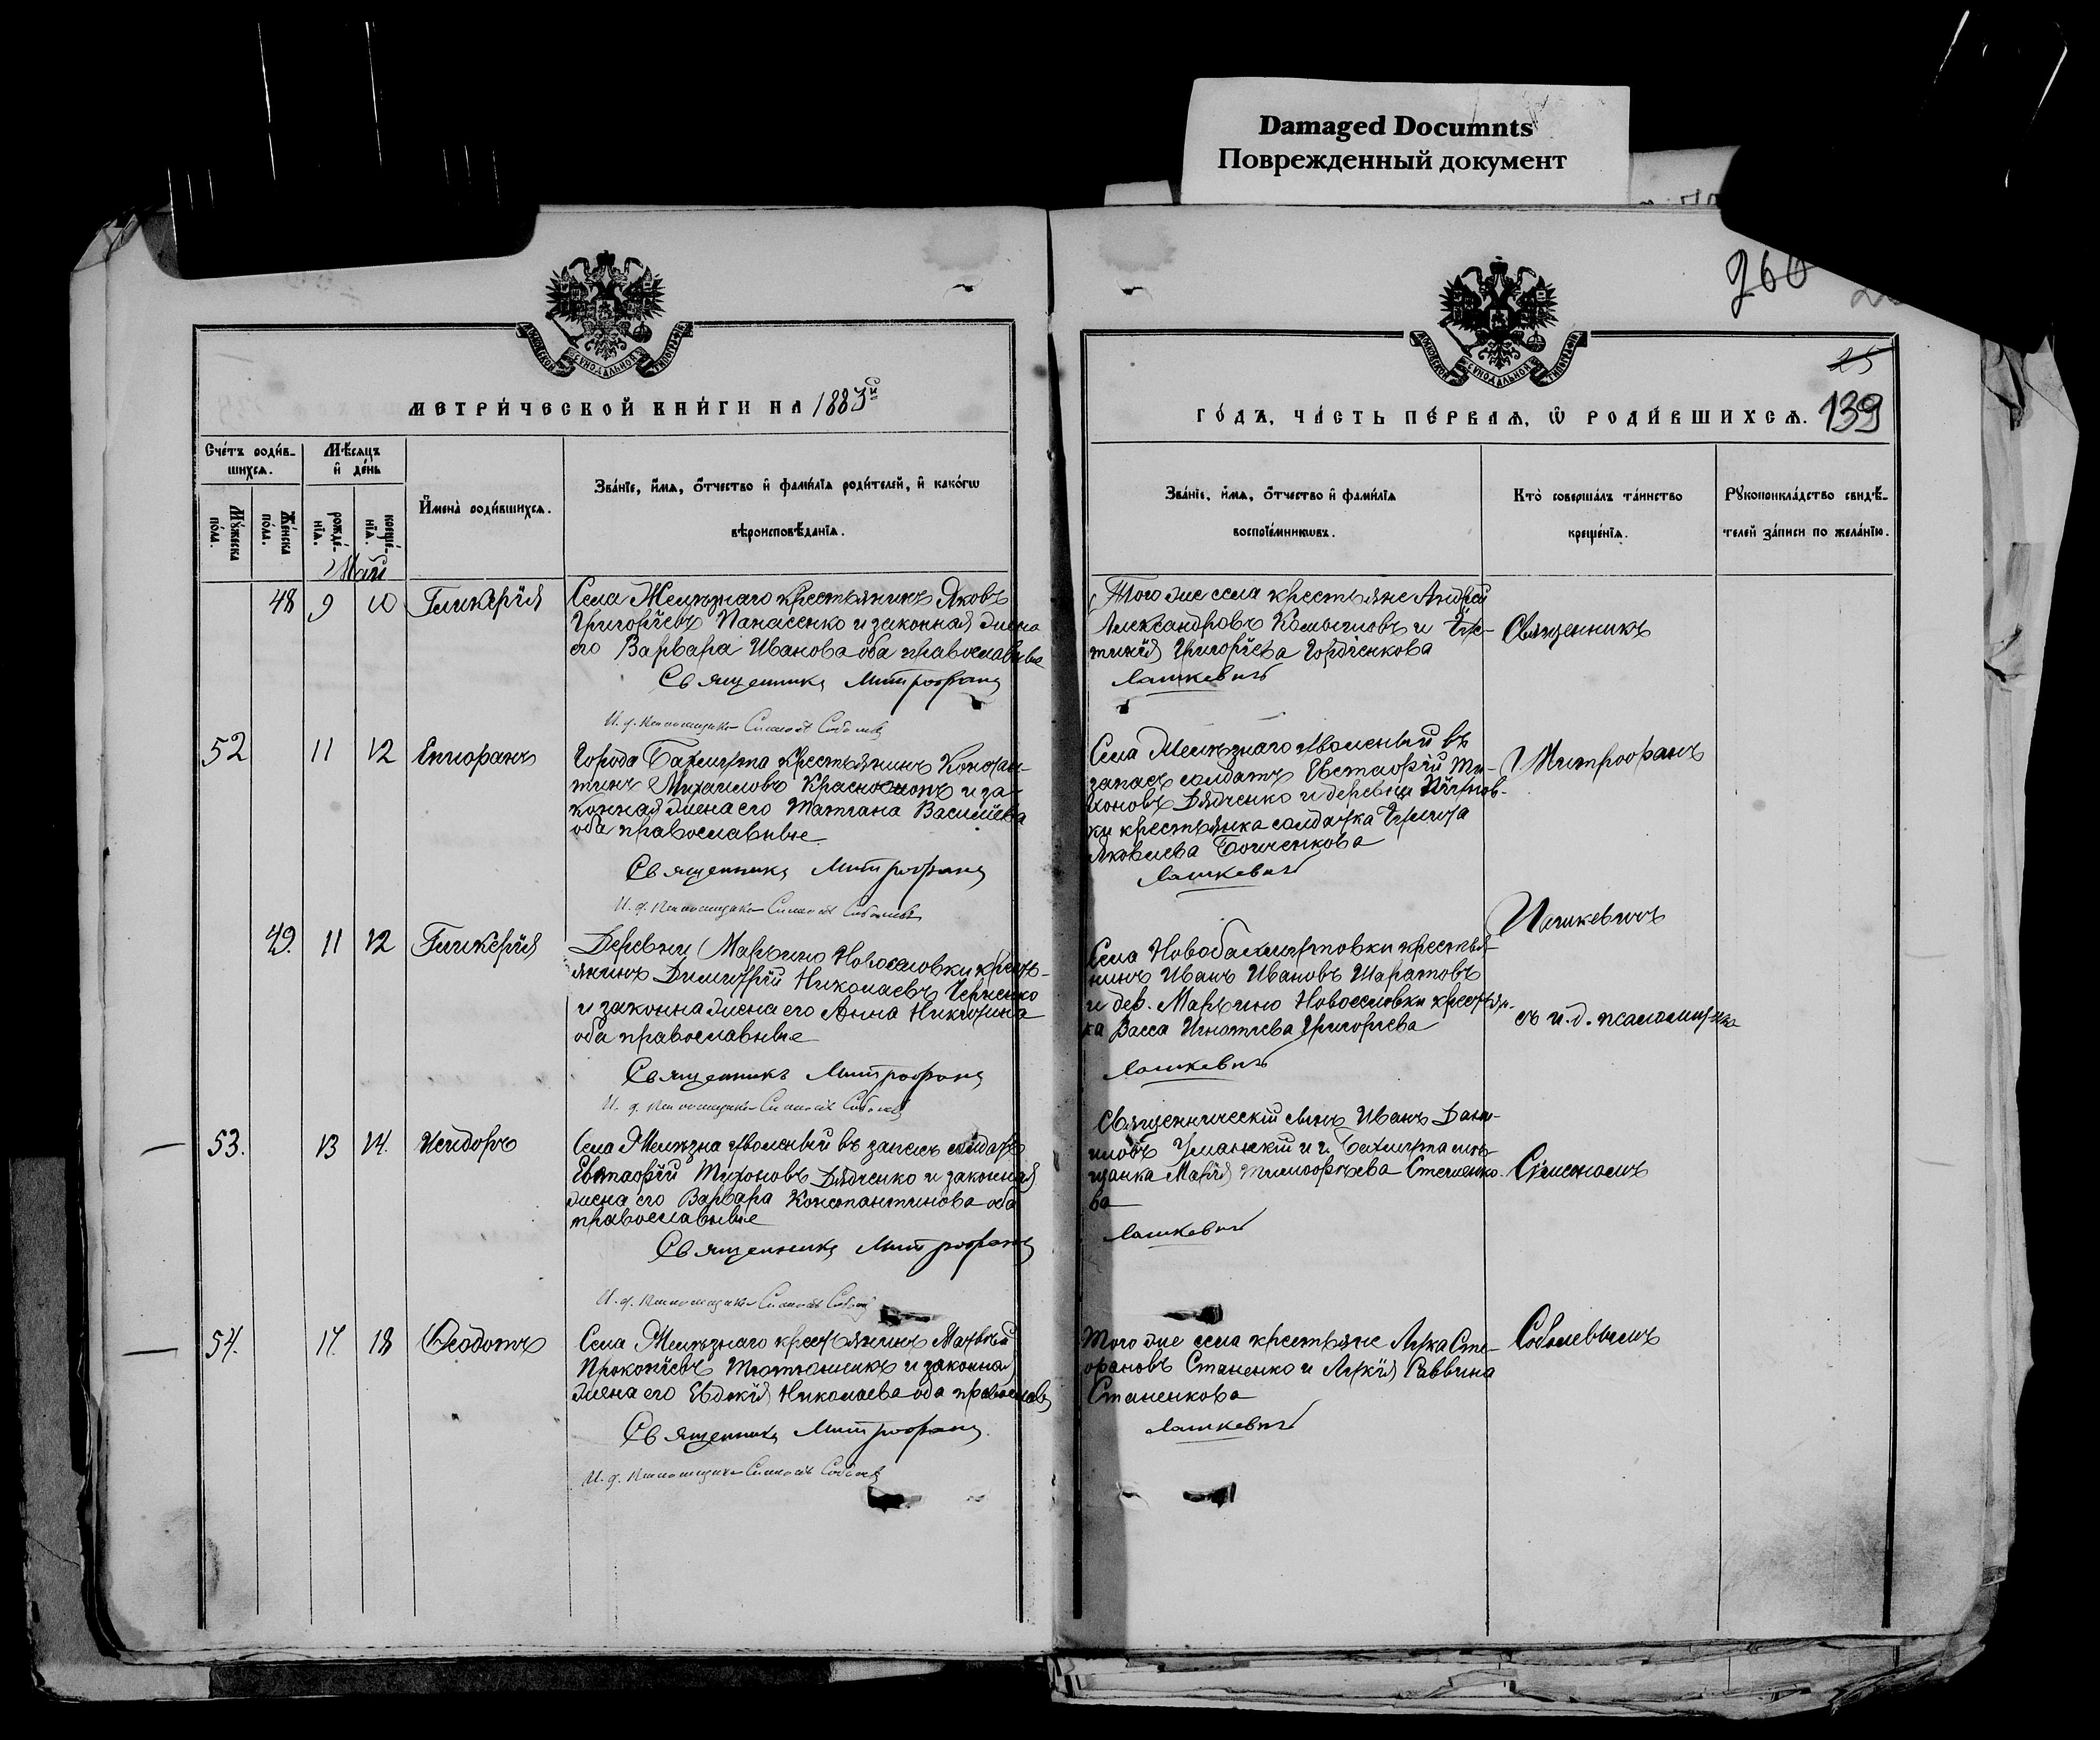 Damaged Documnts
Поврежденный документ
260
МОСКОВСКОЙ СУНОДАЛЬНОЙ ТИПОГРАФІИ
МОСКОВСКОЙ СУНОДАЛЬНОЙ ТИПОГРАФІИ
25
МЕТРИ́ЧЕСКОЙ КНИ́ГИ НА 1883й
ГО́ДЪ, ЧА́СТЬ ПЕ́РВАѦ, Ѡ҆ РОДИ́ВШИХСѦ. 139
Сче́тъ роди́в-
шихсѧ.
Мꙋ́жеска по́ла.
Же́нска по́ла.
Мѣ́сѧцъ и҆ де́нь
рожде́-нїѧ.
креще́-нїѧ.
И҆мена̀ роди́вшихсѧ.
Зва́нїе, и҆́мѧ, ѻ҆́тчество и҆ фами́лїѧ роди́телей, и҆ како́гѡ
вѣроисповѣ́данїѧ.
Зва́нїе, и҆́мѧ, ѻ҆́тчество и҆ фами́лїѧ
воспрїе́мникѡвъ.
Кто̀ соверша́лъ та́инство
креще́нїѧ.
Рꙋкоприкла́дство свидѣ́-
телей за́писи по жела́нїю.
Май
48 9 10 Гликерія
Села Желѣзнаго крестьянинъ Яковъ
Григоріевъ Панасенко и законная жена
его Варвара Иванова оба православные
Священникъ Митрофанъ
И. д. псаломщика Симеонъ Соболевъ
Того же села крестьяне Андрей
Александровъ и
Григоріева Гордіенкова
Лашкевичъ
Священникъ
52 11 12 Епифанъ
Города Бахмута крестьянинъ Констан-
тинъ Михаиловъ и за-
конная жена его Татіана Василіева
оба православные
Священникъ Митрофанъ
И. д. псаломщика Симеонъ Соболевъ
Села Желѣзнаго уволеный въ
запасъ солдатъ Евстафій Ти-
хоновъ Дядченко и деревни
ки крестьянка солдатка
Яковлева
Лашкевичъ
Митрофанъ
49. 11 12 Гликерія
Деревни Марьино Новоселовки кресть-
янинъ Димитрій Николаевъ Черненко
и законна жена его Анна Никитина
оба православные
Священникъ Митрофанъ
И. д. псаломщика Симеонъ Соболевъ
Села Новобахмутовки крестья-
нинъ Иванъ Ивановъ Шаратовъ
и дер. Марьино Новоселовки крестьян-
ка Васса Игнатіева Григоріева
Лашкевичъ
Лашкевичъ
съ и. д. псаломщика
53. 13 14. Исидоръ
Села Желѣзна уволеный въ запасъ солдатъ
Евстафій Тихоновъ Дядченко и законная
жена его Варвара Константинова оба
православные
Священникъ Митрофанъ
И. д. псаломщика Симеонъ Соболевъ
Священническій сынъ Иванъ Дани-
иловъ Уманскій и г. Бахмута мѣ-
щанка Марія Тимофѣева Степаненко-
ва
Лашкевичъ
Симеономъ
54. 17. 18 Ѳеодотъ
Села Желѣзнаго крестьянинъ Матвѣй
Прокопіевъ и законная
жена его Евдокія Николаева оба православ
Священникъ Митрофанъ
И. д. псаломщика Симеонъ Соболевъ
Того же села крестьяне Лука Сте-
фановъ Стаценко и Лукія Саввина
Стаценкова
Лашкевичъ
Соболевымъ